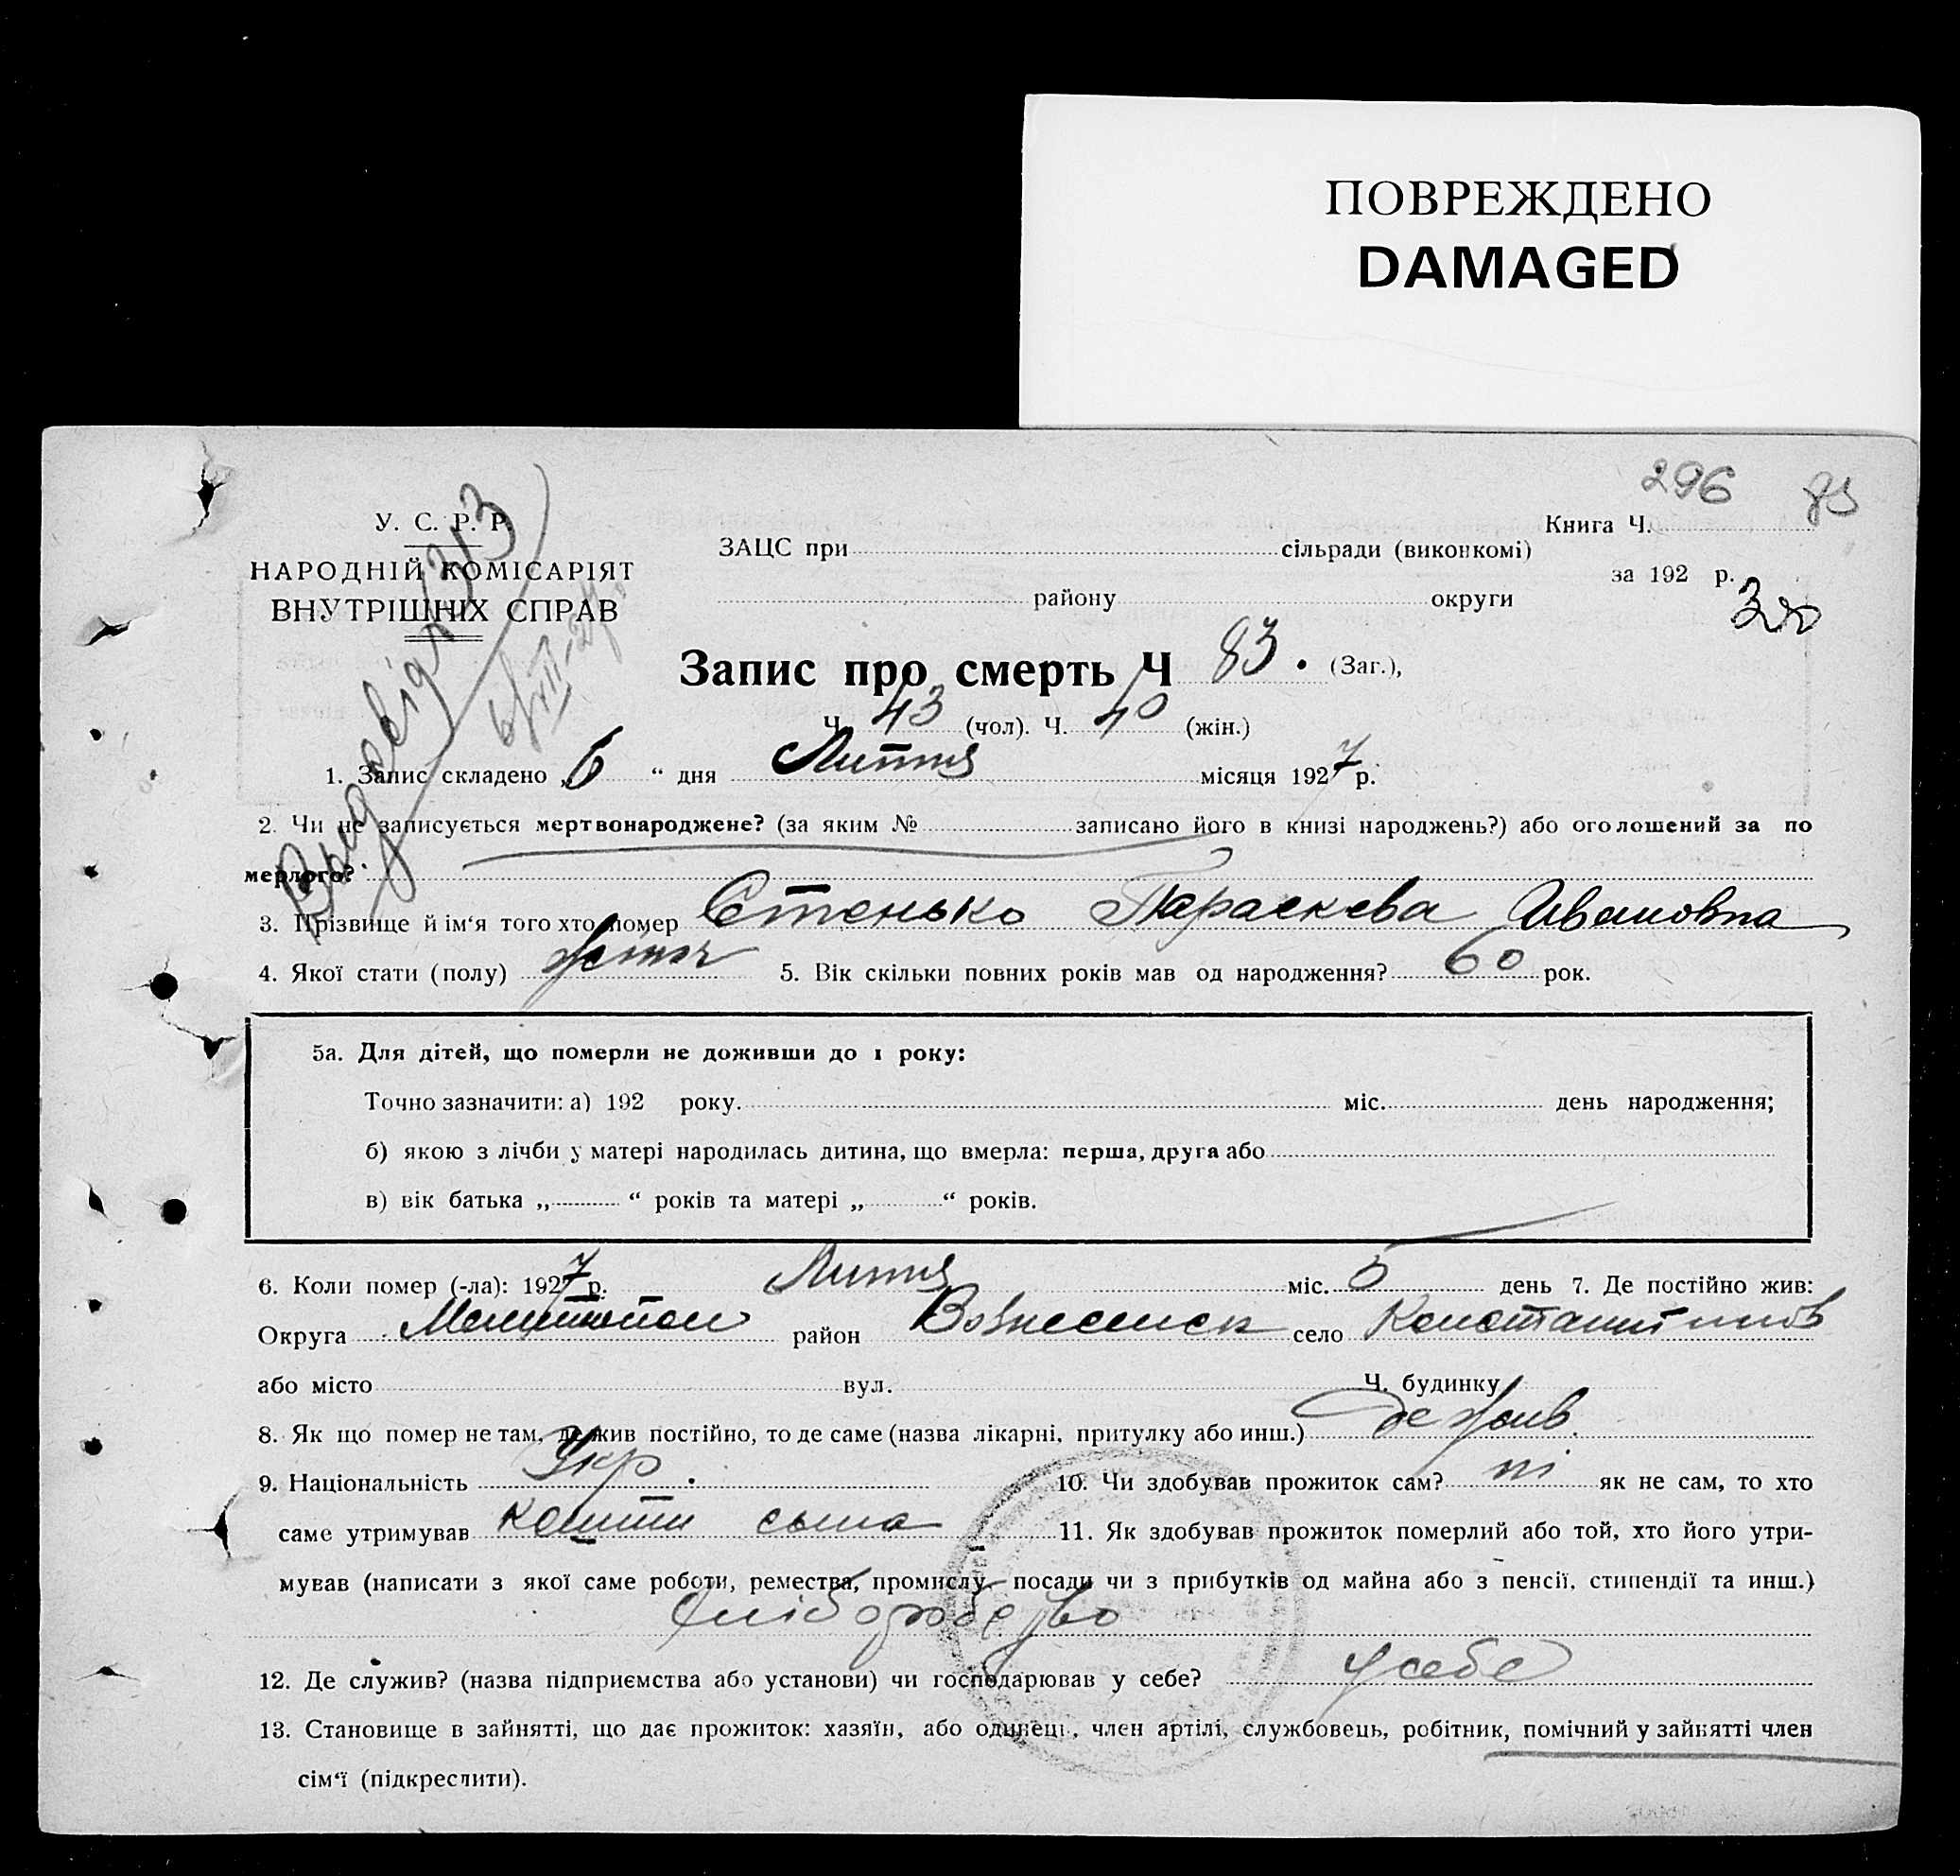 ПОВРЕЖДЕНО
DAMAGED
296 83
У. С. Р. Р.
НАРОДНІЙ КОМІСАРІЯТ
ВНУТРІШНІХ СПРАВ
Книга Ч.
ЗАЦС при сільради (виконкомі)
за 192 р.
району округи
Запис про смерть Ч 83. (Заг.),
Ч. 43 (чол). Ч. 40 (жін.)
1. Запис складено „6“ дня Липня місяця 1927 р.
2. Чи не записується мертвонароджене? (за яким № записано його в книзі народжень?) або оголошений за по
мерлого?
3. Прізвище й ім‘я того хто помер Стенько Параскева Ивановна
4. Якої стати (полу) 5. Вік скільки повних років мав од народження? 60 рок.
5а. Для дітей, що померли не доживши до 1 року:
Точно зазначити: а) 192 року. міс. день народження;
б) якою з лічби у матері народилась дитина, що вмерла: перша, друга або
в) вік батька „ “ років та матері „ “ років.
6. Коли помер (-ла): 1927 р. Липня міс. 5 день 7. Де постійно жив:
Округа Мелитопол район Вознесенск село Константинов
або місто вул. Ч. будинку
8. Як що помер не там, де жив постійно, то де саме (назва лікарні, притулку або инш.) де жив.
9. Національність Укр. 10. Чи здобував прожиток сам? ні як не сам, то хто
саме утримував кошти сына 11. Як здобував прожиток померлий або той, хто його утри-
мував (написати з якої саме роботи, ремества, промислу, посади чи з прибутків од майна або з пенсії, стипендії та инш.)
хліборобство
12. Де служив? (назва підприємства або установи) чи господарював у себе? у себе
13. Становище в зайнятті, що дає прожиток: хазяїн, або одинець, член артілі, службовець, робітник, помічний у зайнятті член
сім‘ї (підкреслити).